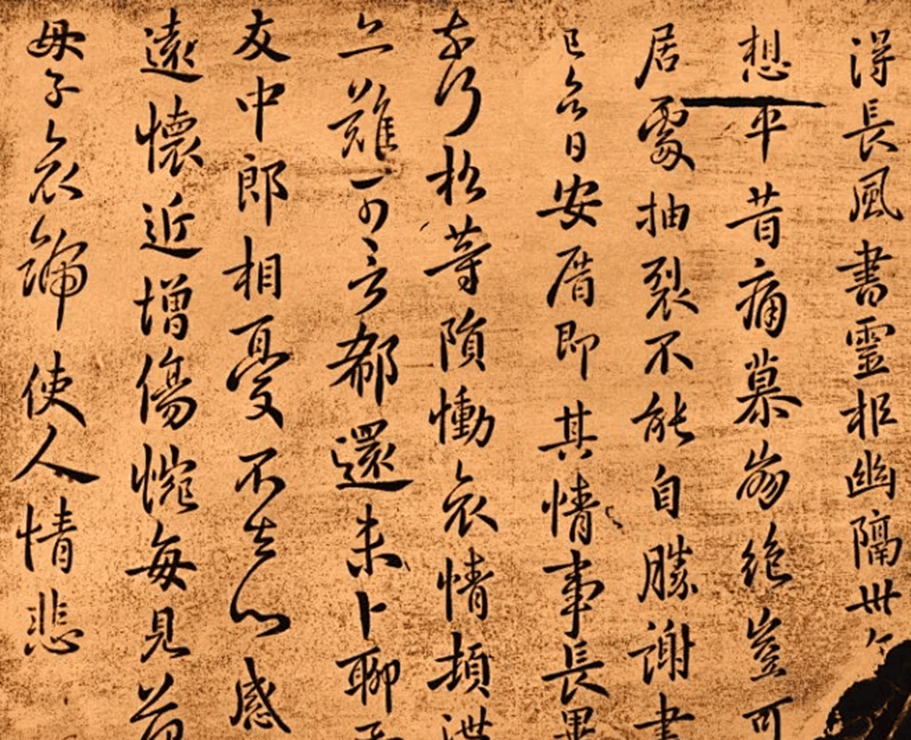 得長風書靈柩幽隔卅
想平昔痛慕崩絕豈可
居處抽裂不能自勝謝書
已日安厝即其情事長畢
奈何松等隕慟哀情頓泄
亦難可言郗還未卜聊
友中郎相憂不去心感
遠懷近增傷惋每見范
母子哀號使人情悲